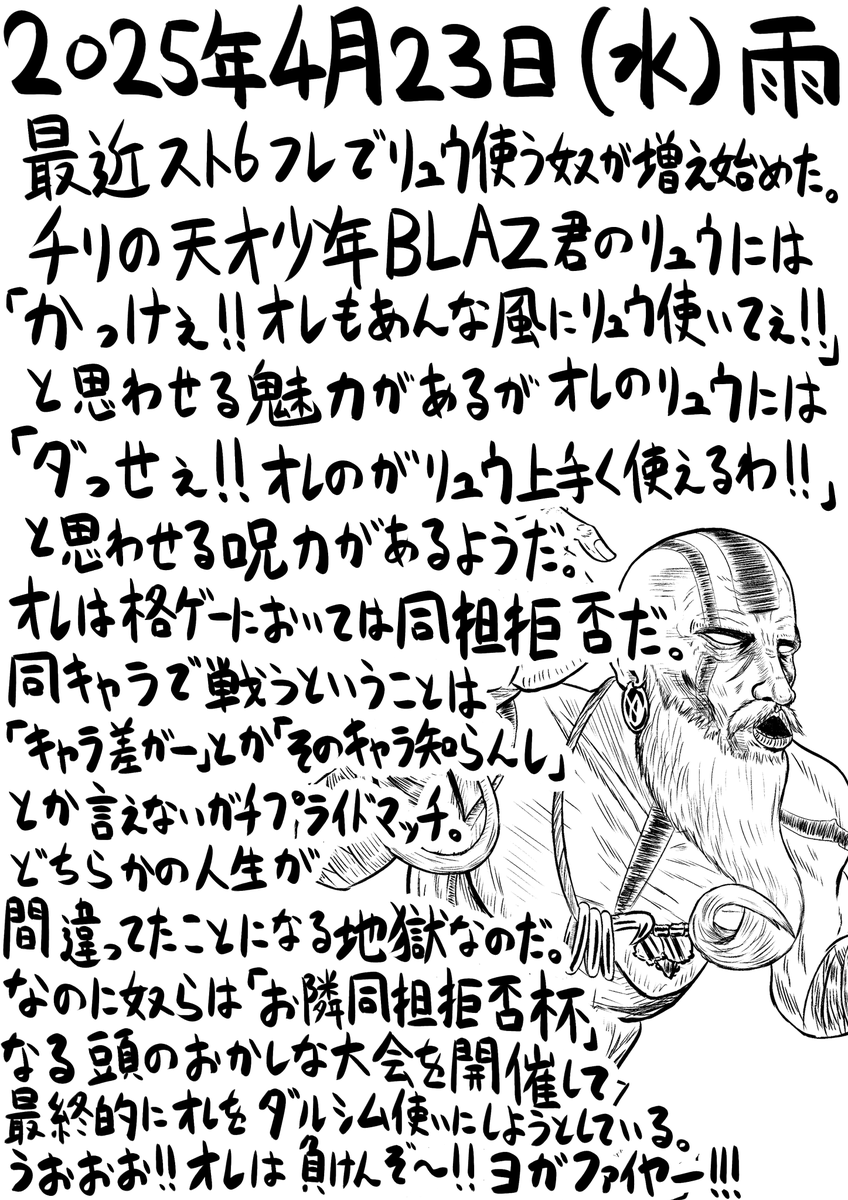 2025年4月23日(水)雨
最近スト6フレでリュウ使う奴が増え始めた。
チリの天才少年BLAZ君のリュウには
「かっけぇ!!オレもあんな風にリュウ使いてぇ!!」
と思わせる魅力があるがオレのリュウには
「ダっせぇ!!オレのがリュウ上手く使えるわ!!」
と思わせる呪力があるようだ。
オレは格ゲーにおいては同担拒否だ。
同キャラで戦うということは
「キャラ差がー」とか「そのキャラ知らんし」
とか言えないガチプライドマッチ。
どちらかの人生が
間違ってたことになる地獄なのだ。
なのに奴らは「お隣同担拒否杯」
なる頭のおかしな大会を開催して、
最終的にオレをダルシム使いにしようとしている。
うおおお!!オレは負けんぞ〜!!ヨガファイヤー!!!